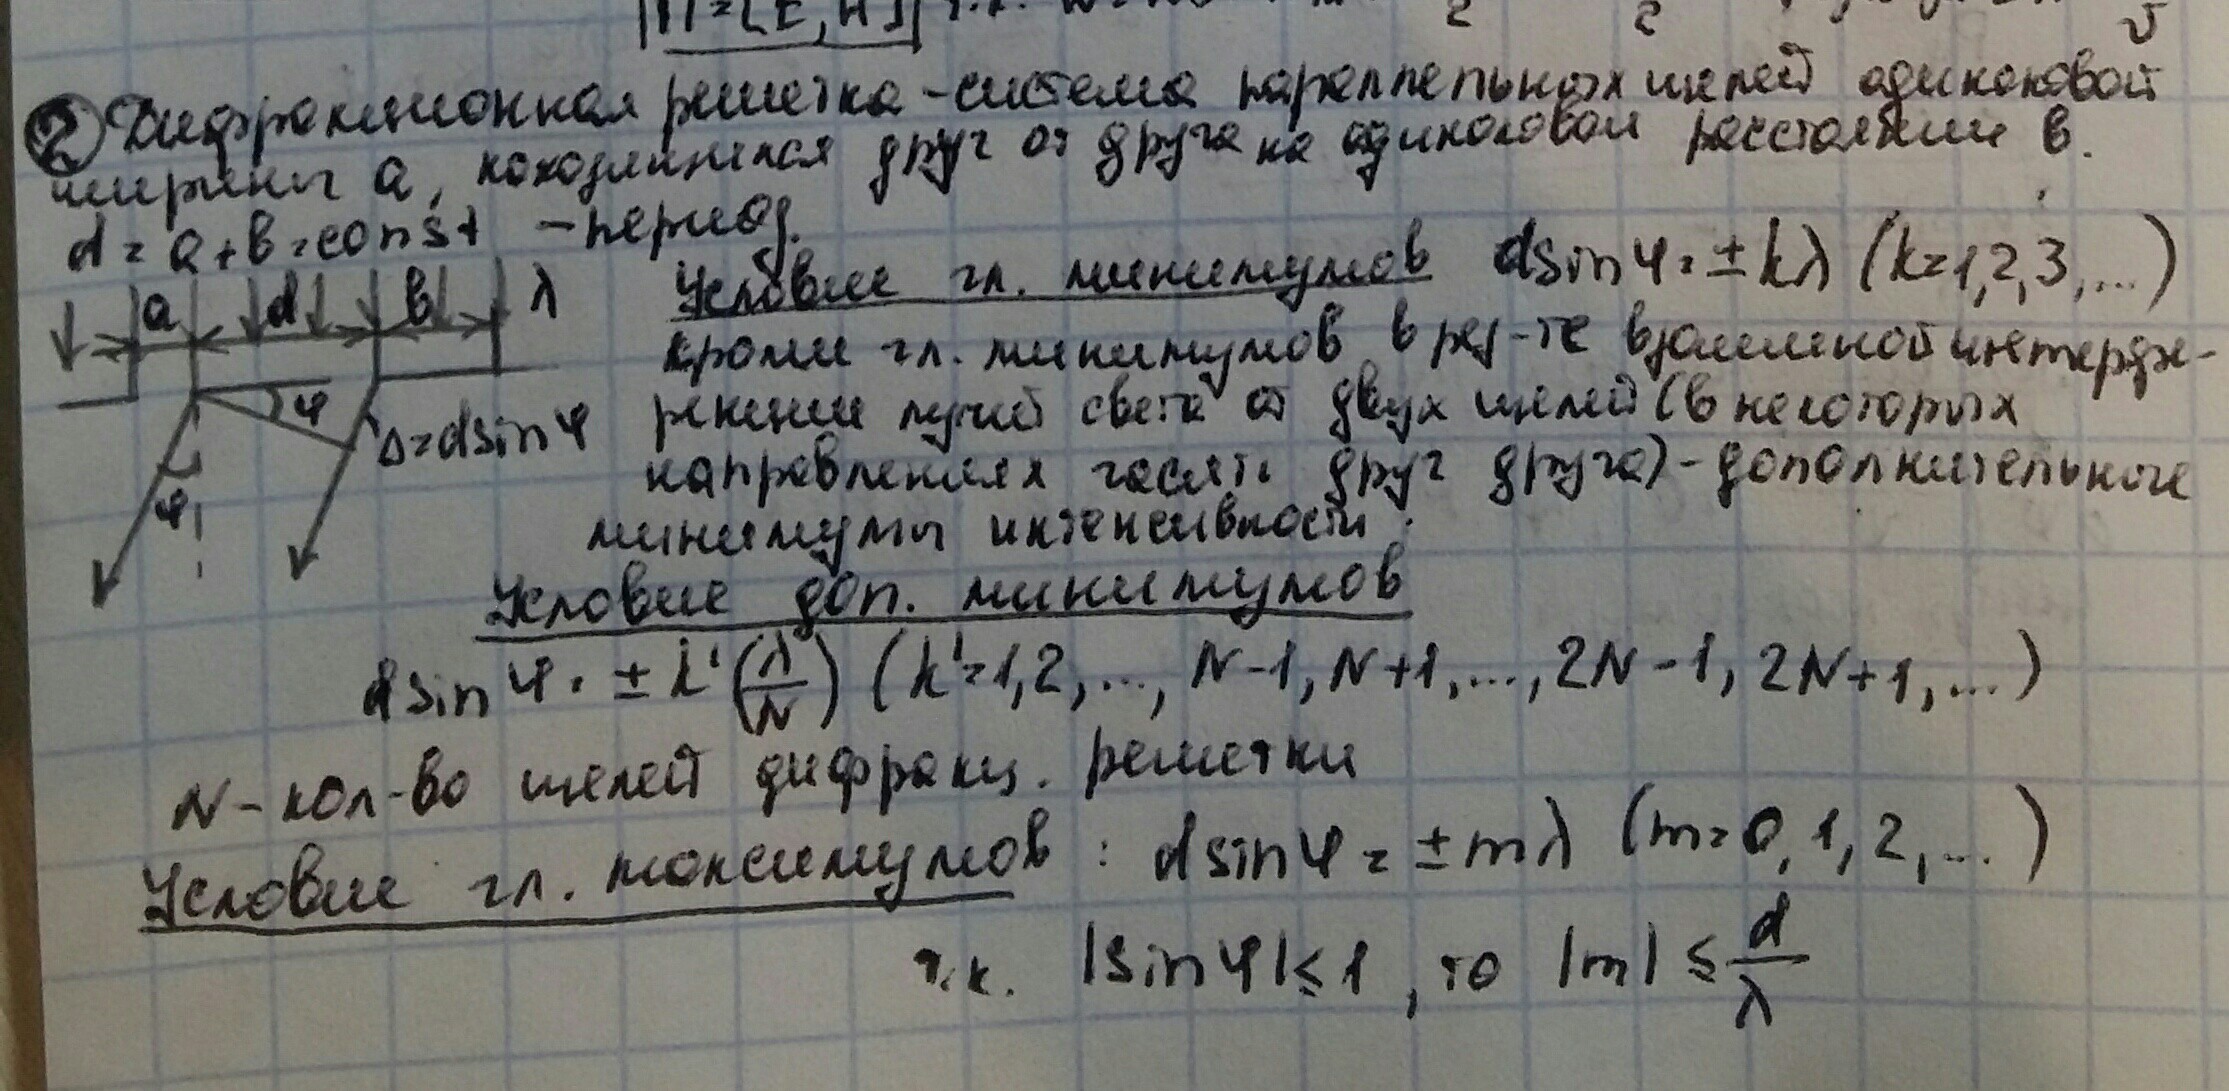 |П=[E,H]|
② Дифракционная решетка - система параллельных щелей одинаковой
ширины a, находящихся друг от друга на одинаковом расстоянии b.
d = a + b = const - период.
a d b λ
Условие гл. минимумов dsinφ = ± kλ (k=1,2,3,...)
кроме гл. минимумов в рез-те взаимной интерфе-
ренции лучей света от двух щелей (в некоторых
φ Δ=dsinφ
направлениях гасят друг друга) - дополнительные
φ
минимумы интенсивности.
Условие доп. минимумов
dsinφ = ± k' (λ/N) (k'=1,2,..., N-1, N+1,..., 2N-1, 2N+1,...)
N - кол-во щелей дифракц. решетки
Условие гл. максимумов: dsinφ = ± mλ (m=0,1,2,...)
т.к. |sinφ| ≤ 1, то |m| ≤ d/λ